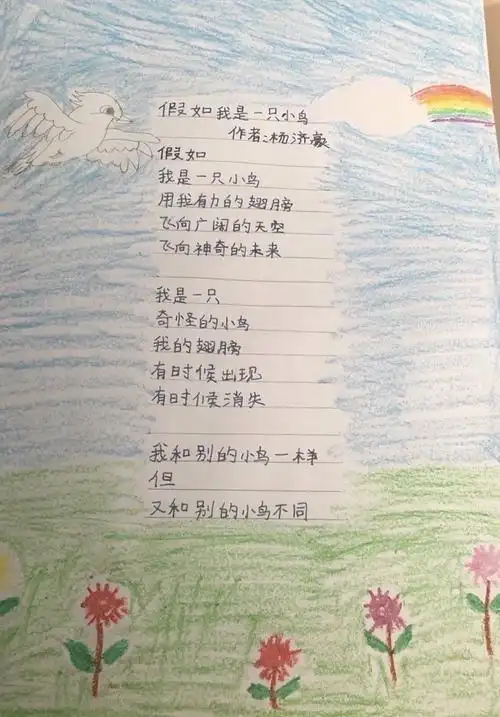 假如我是一只小鸟
作者:杨济豪
假如
我是一只小鸟
用我有力的翅膀
飞向广阔的天空
飞向神奇的未来
我是一只
奇怪的小鸟
我的翅膀
有时候出现
有时候消失
我和别的小鸟一样
但
又和别的小鸟不同